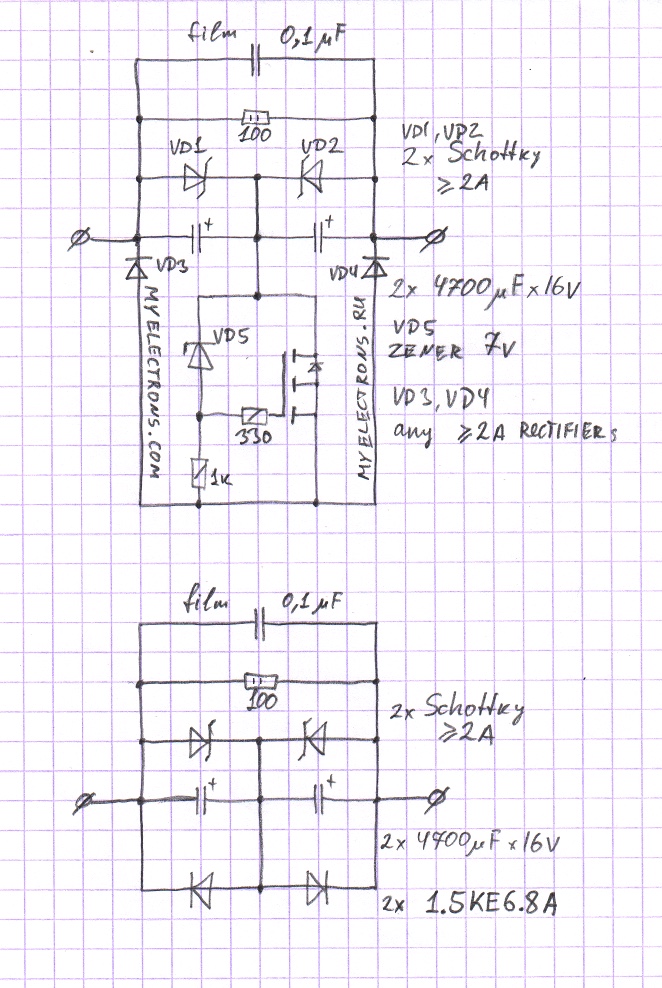 film 0,1 μF
100
VD1 VD2
VD1, VD2
2x Schottky
≥ 2A
+ +
VD3 VD4
2x 4700μF x 16V
MYELECTRONS.COM
MYELECTRONS.RU
VD5
VD5
ZENER 7V
VD3, VD4
any ≥2A RECTIFIERS
330
1K
film 0,1 μF
100
2x Schottky
≥2A
+ +
2x 4700μF x 16V
2x 1.5KE6.8A